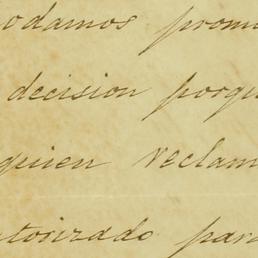 odamos prom
decision porqu
quien reclam
torizado para